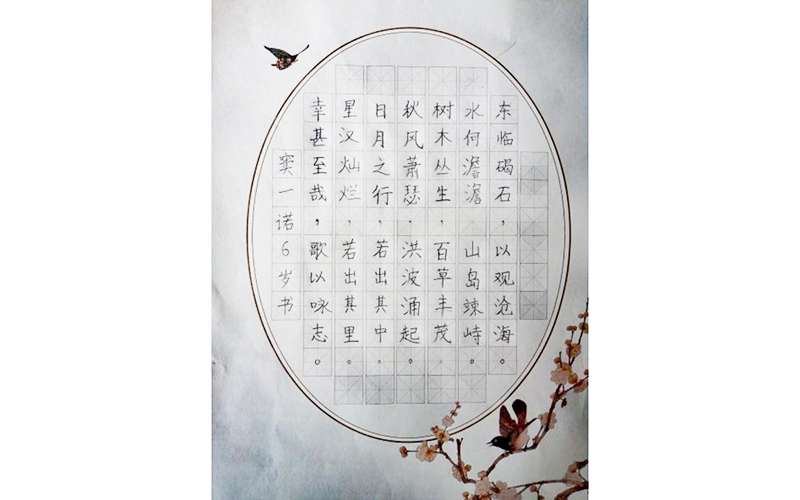 东临碣石，以观沧海。
水何澹澹，山岛竦峙。
树木丛生，百草丰茂。
秋风萧瑟，洪波涌起。
日月之行，若出其中。
星汉灿烂，若出其里。
幸甚至哉，歌以咏志。
窦一诺6岁书